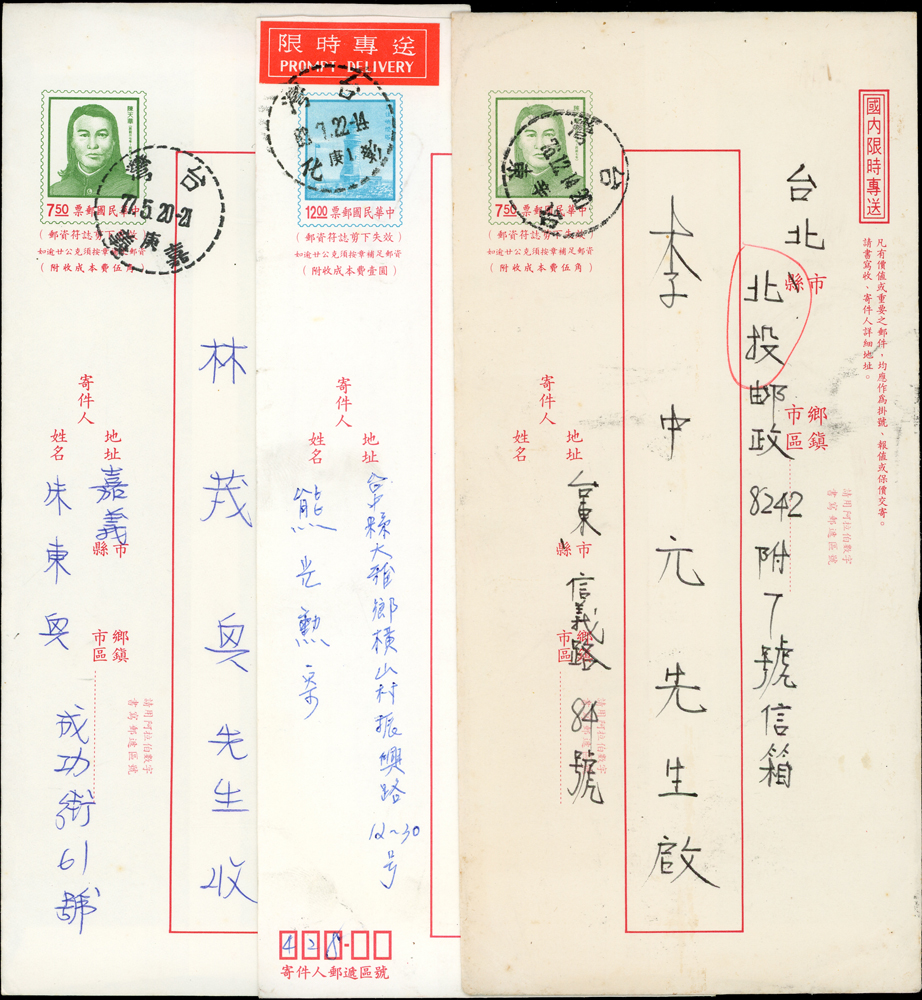 陳天華
7.50 中華民國郵票
(郵資符誌剪下失效)
如逾廿公克須按章補足郵資
(附收成本費伍角)
台灣
77.5.20-21
嘉義
寄件人
地址
姓名
嘉義
市縣
鄉鎮市區
成功街61號
請用阿拉伯數字書寫郵遞區號
林茂興先生收
限時專送
PROMPT DELIVERY
台灣
7.22-14
彰化
12.00 中華民國郵票
(郵資符誌剪下失效)
如逾廿公克須按章補足郵資
(附收成本費壹圓)
寄件人
地址
姓名
縣大雅鄉橫山村振興路12~30号
熊光勳
428
寄件人郵遞區號
陳天華
7.50 中華民國郵票
(郵資符誌剪下失效)
如逾廿公克須按章補足郵資
(附收成本費伍角)
台灣
寄件人
地址
姓名
台東
市縣
信義路84號
鄉鎮市區
請用阿拉伯數字書寫郵遞區號
李中元先生啟
台北
市縣
北投郵政8242附7號信箱
鄉鎮市區
請用阿拉伯數字書寫郵遞區號
國內限時專送
凡有價值或重要之郵件,均應作為掛號、報值或保價交寄。
請書寫收、寄件人詳細地址。